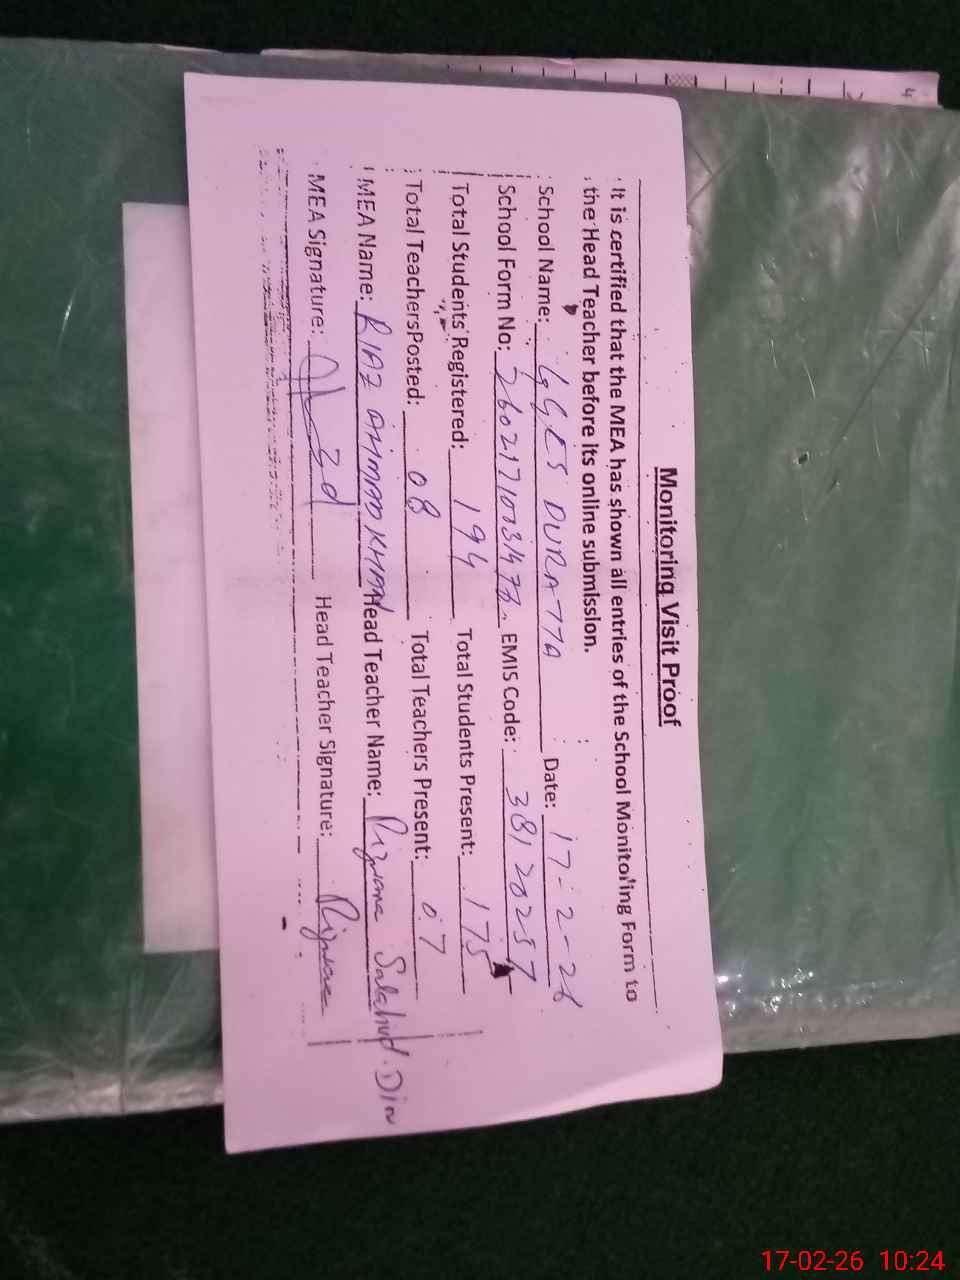 Monitoring Visit Proof
It is certified that the MEA has shown all entries of the School Monitoring Form to
the Head Teacher before its online submission.
School Name: GGES DURATTA Date: 17-2-26
School Form No: EMIS Code:
Total Students Registered: 194 Total Students Present: 175
Total TeachersPosted: 08 Total Teachers Present: 07
MEA Name: RIAZ AHMAD KHAN Head Teacher Name: Salahud.Din
MEA Signature: Head Teacher Signature:
4
17-02-26 10:24